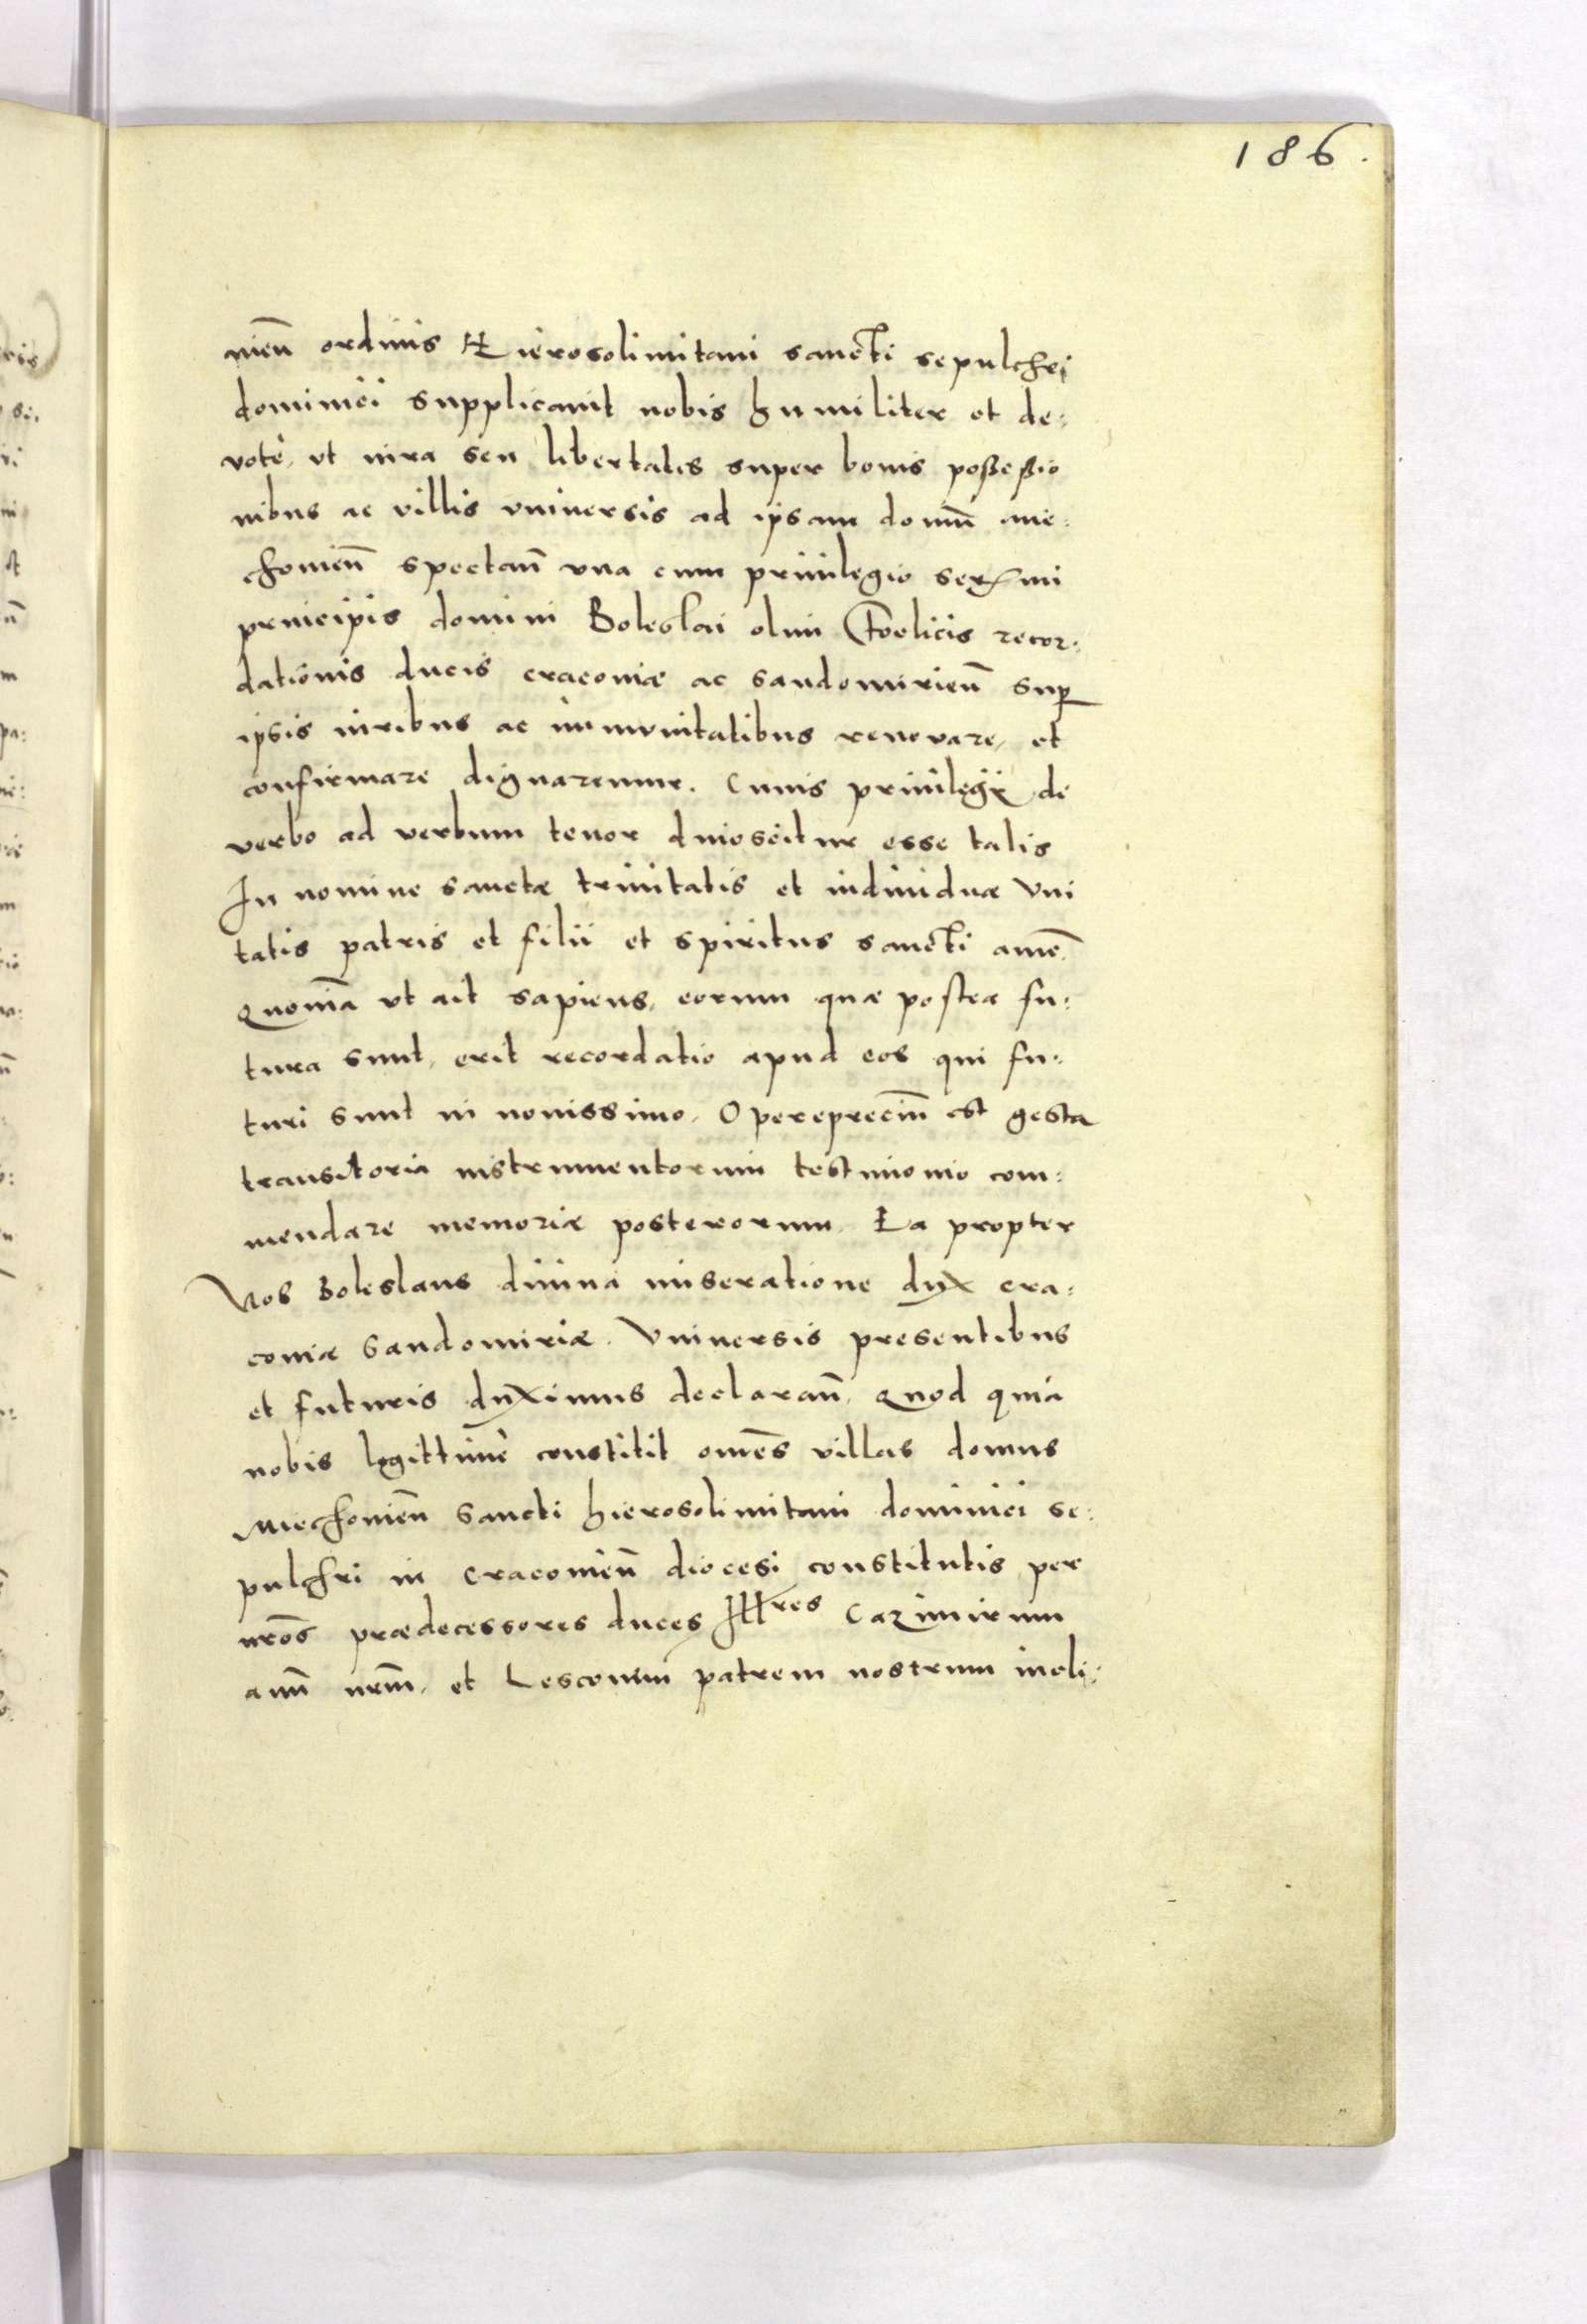 186.
nieñ ordinis Hierosolimitani sancti sepulchri
dominici supplicavit nobis humiliter et de:
vote, ut iura seu libertates super bonis possessio
nibus ac villis vniversis ad ipsam domū mie:
chovieñ spectañ vna cum privilegio serᵐⁱ
principis domini Boleslai olim Foelicis recor:
dationis ducis cracoviæ ac sandomirieñ sup
ipsis iuribus ac immunitatibus renovare, et
confirmare dignaremur. Cuius privilegij de
verbo ad verbum tenor dinoscitur esse talis
In nomine sanctæ trinitatis et individuæ Vni
tatis patris et filii et spiritus sancti amē
Quoniā ut ait sapiens, eorum quæ postea fu:
tura sunt, erit recordatio apud eos qui fu:
turi sunt in novissimo. Opereprecīm est gesta
transitoria instrumentorum testimonio com:
mendare memoriæ posterorum. Ea propter
Nos Boleslaus divina miseratione dux cra:
coviæ Sandomiriæ. Vniversis presentibus
et futuris duximus declarañ, Quod quia
nobis legittime constitit omēs villas domus
Miechovieñ Sancti hierosolimitani dominici se:
pulchri in Cracovieñ diocesi constitutis per
nr̄os prædecessores duces Illres Cazimirum
avū nr̄m, et Lesconem patrem nostrum incli: